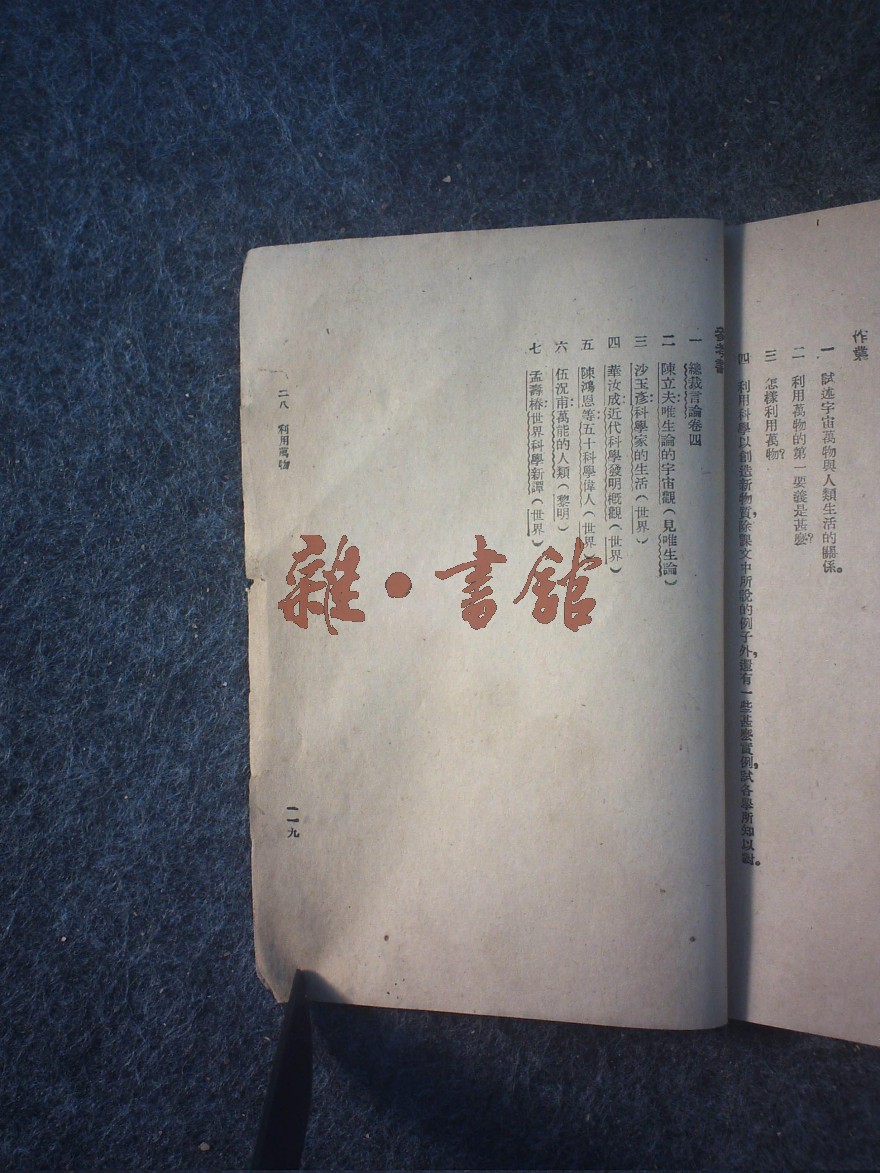 作業
一 試述宇宙萬物與人類生活的關係。
二 利用萬物的第一要義是甚麼？
三 怎樣利用萬物？
四 利用科學以創造新物質，除課文中所說的例子外，還有一些甚麼實例，試各舉所知以對。
參考書
一 總裁言論卷四
二 陳立夫：唯生論的宇宙觀（見唯生論）
三 沙玉彥：科學家的生活（世界）
四 華汝成：近代科學發明概觀（世界）
五 陳鴻恩等：五十科學偉人（世界）
六 伍況甫：萬能的人類（黎明）
七 孟壽椿：世界科學新譚（世界）
二八 利用萬物
一一九
雜·書館